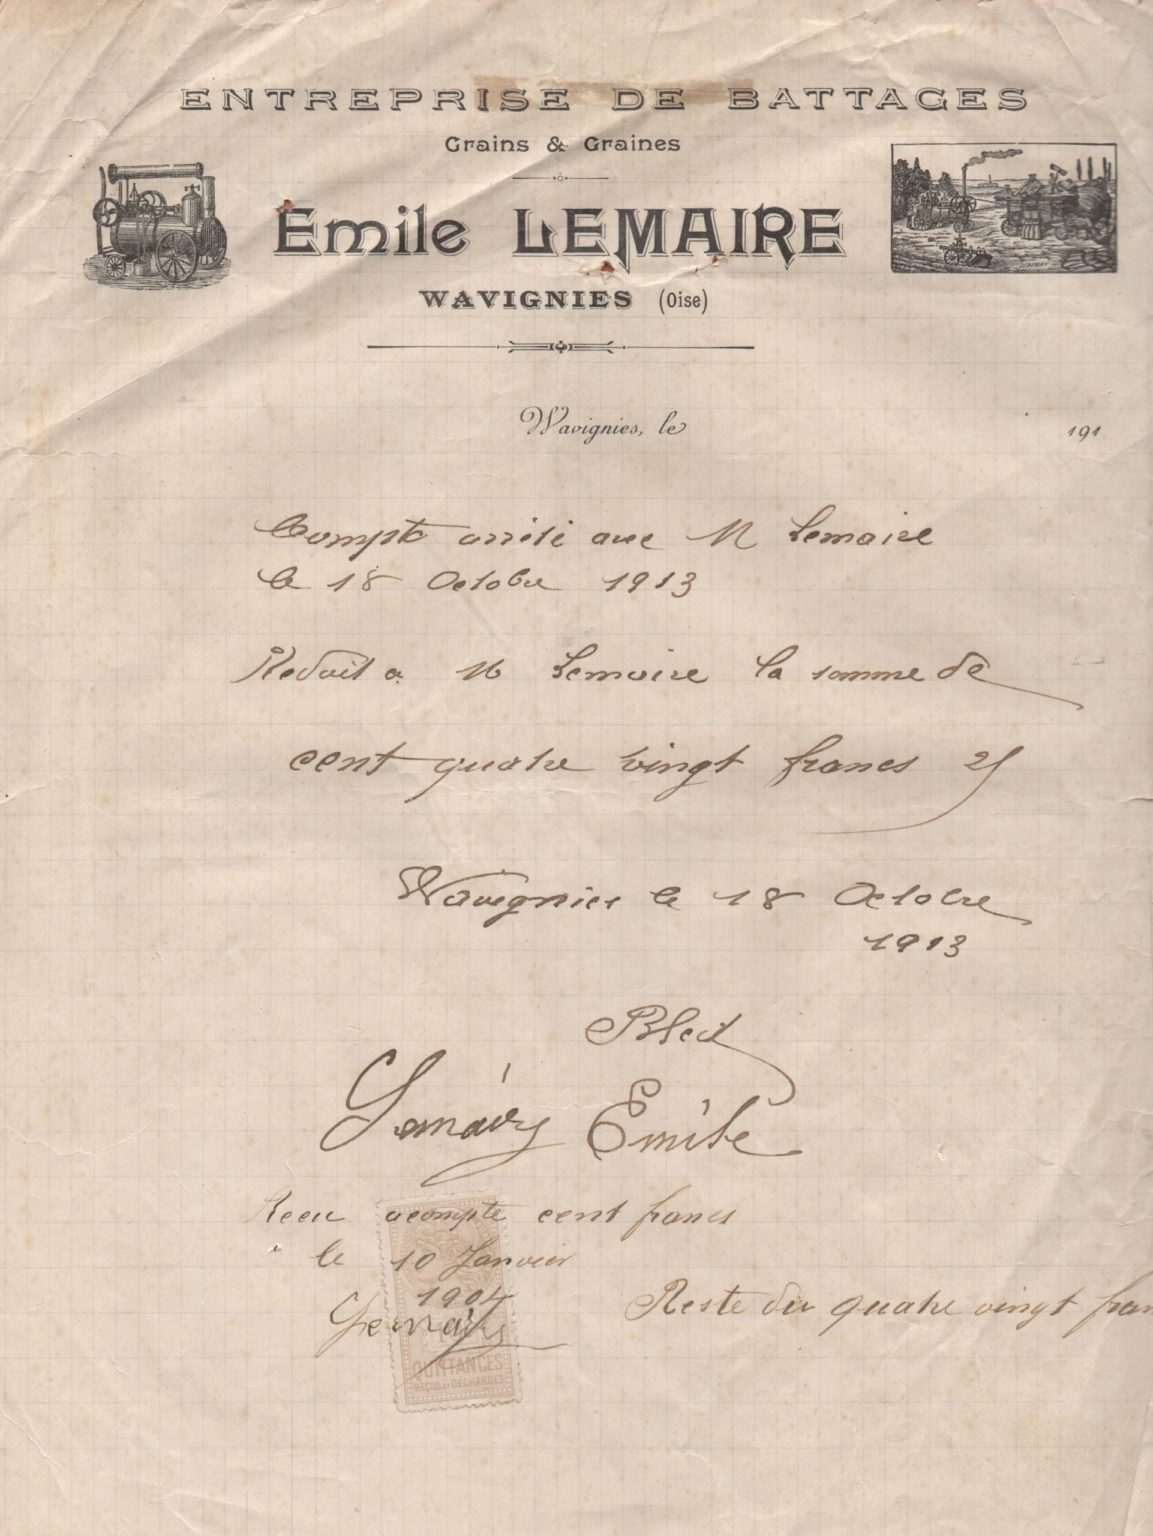 ENTREPRISE DE BATTAGES
Grains & Graines
Emile LEMAIRE
WAVIGNIES (Oise)
Wavignies, le 191
Compte arrêté avec M Lemaire
le 18 Octobre 1913
Redoit a M Lemaire la somme de
cent quatre vingt francs
Wavignies le 18 Octobre
1913
Emile
Recu acompte cent francs
le 10 Janvier
1904
Reste du quatre vingt fran
QUITTANCES
REÇUS ET DÉCHARGES